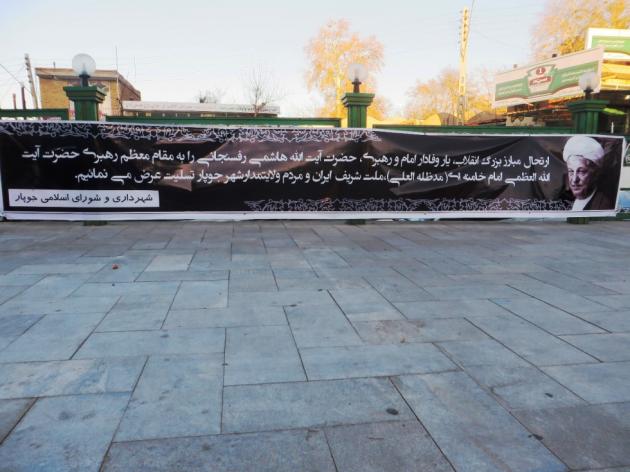 ارتحال مبارز بزرگ انقلاب، یار وفادار امام و رهبری، حضرت آیت الله هاشمی رفسنجانی را به مقام معظم رهبری حضرت آیت
الله العظمی امام خامنه ای(مدظله العلی)،ملت شریف ایران و مردم ولایتمدارشهر جوپار تسلیت عرض می نمائیم.
شهرداری و شورای اسلامی جوپار